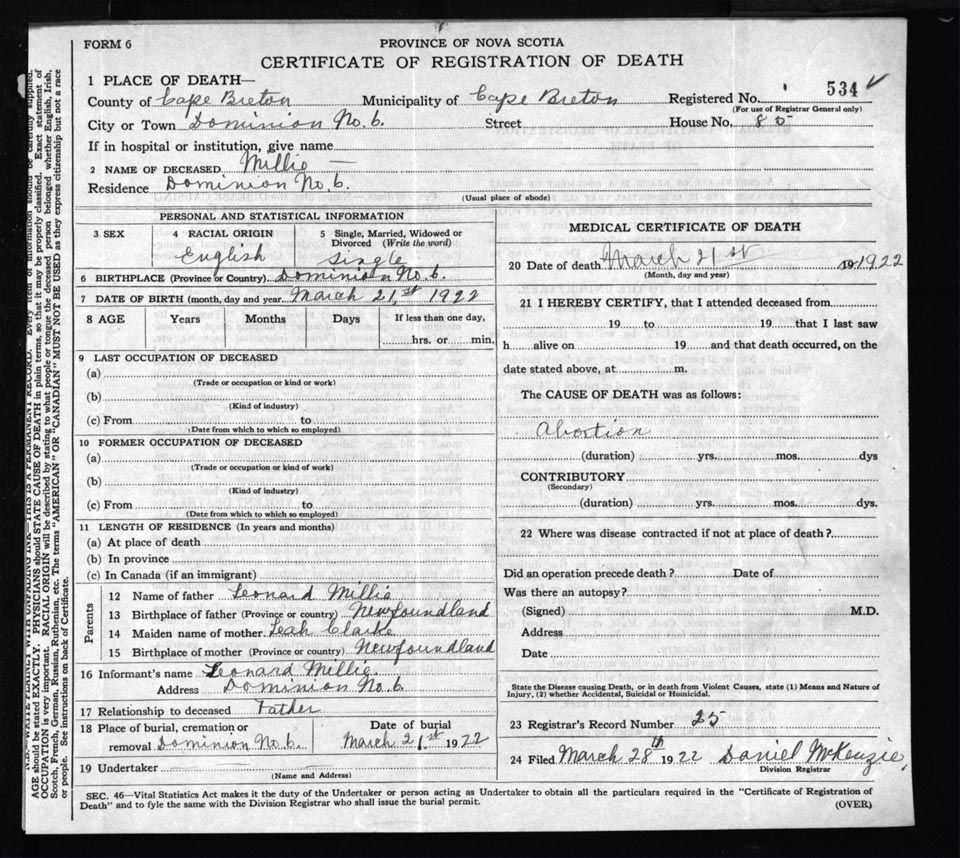 FORM 6
PROVINCE OF NOVA SCOTIA
CERTIFICATE OF REGISTRATION OF DEATH
1 PLACE OF DEATH—
County of Cape Breton Municipality of Cape Breton Registered No. 534
(For use of Registrar General only)
City or Town Dominion No. 6. Street House No. 80
If in hospital or institution, give name
2 NAME OF DECEASED Millie —
Residence Dominion No. 6.
(Usual place of abode)
PERSONAL AND STATISTICAL INFORMATION
3 SEX
4 RACIAL ORIGIN English
5 Single, Married, Widowed or Divorced (Write the word) Single
6 BIRTHPLACE (Province or Country) Dominion No. 6.
7 DATE OF BIRTH (month, day and year) March 21st 1922
8 AGE Years Months Days If less than one day,
hrs. or min.
9 LAST OCCUPATION OF DECEASED
(a)
(Trade or occupation or kind or work)
(b)
(Kind of industry)
(c) From to
(Date from which to which so employed)
10 FORMER OCCUPATION OF DECEASED
(a)
(Trade or occupation or kind of work)
(b)
(Kind of industry)
(c) From to
(Date from which to which so employed)
11 LENGTH OF RESIDENCE (In years and months)
(a) At place of death
(b) In province
(c) In Canada (if an immigrant)
Parents
12 Name of father Leonard Millie
13 Birthplace of father (Province or country) Newfoundland
14 Maiden name of mother Leah Clarke
15 Birthplace of mother (Province or country) Newfoundland
16 Informant's name Leonard Millie
Address Dominion No. 6
17 Relationship to deceased Father
18 Place of burial, cremation or removal Dominion No. 6. Date of burial March 21st 1922
19 Undertaker
(Name and Address)
MEDICAL CERTIFICATE OF DEATH
20 Date of death March 21st 1922
(Month, day and year)
21 I HEREBY CERTIFY, that I attended deceased from
19 to 19 that I last saw
h alive on 19 and that death occurred, on the
date stated above, at m.
The CAUSE OF DEATH was as follows:
Abortion
(duration) yrs. mos. dys
CONTRIBUTORY
(Secondary)
(duration) yrs. mos. dys.
22 Where was disease contracted if not at place of death?
Did an operation precede death? Date of
Was there an autopsy?
(Signed) M.D.
Address
Date
State the Disease causing Death, or in death from Violent Causes, state (1) Means and Nature of
Injury, (2) whether Accidental, Suicidal or Homicidal.
23 Registrar's Record Number 25
24 Filed March 28th 1922 Daniel McKenzie,
Division Registrar
SEC. 46—Vital Statistics Act makes it the duty of the Undertaker or person acting as Undertaker to obtain all the particulars required in the "Certificate of Registration of
Death" and to fyle the same with the Division Registrar who shall issue the burial permit.
(OVER)
AGE should be stated EXACTLY. PHYSICIANS should STATE CAUSE OF DEATH in plain terms, so that it may be properly classified. Exact statement of
OCCUPATION is very important. RACIAL ORIGIN will be described by stating to what people or tongue the deceased person belonged whether English, Irish,
Scotch, French, German, Russian, Ruthenian, etc. The terms "AMERICAN" OR "CANADIAN" MUST NOT BE USED as they express citizenship but not a race
or people. See instructions on back of Certificate.